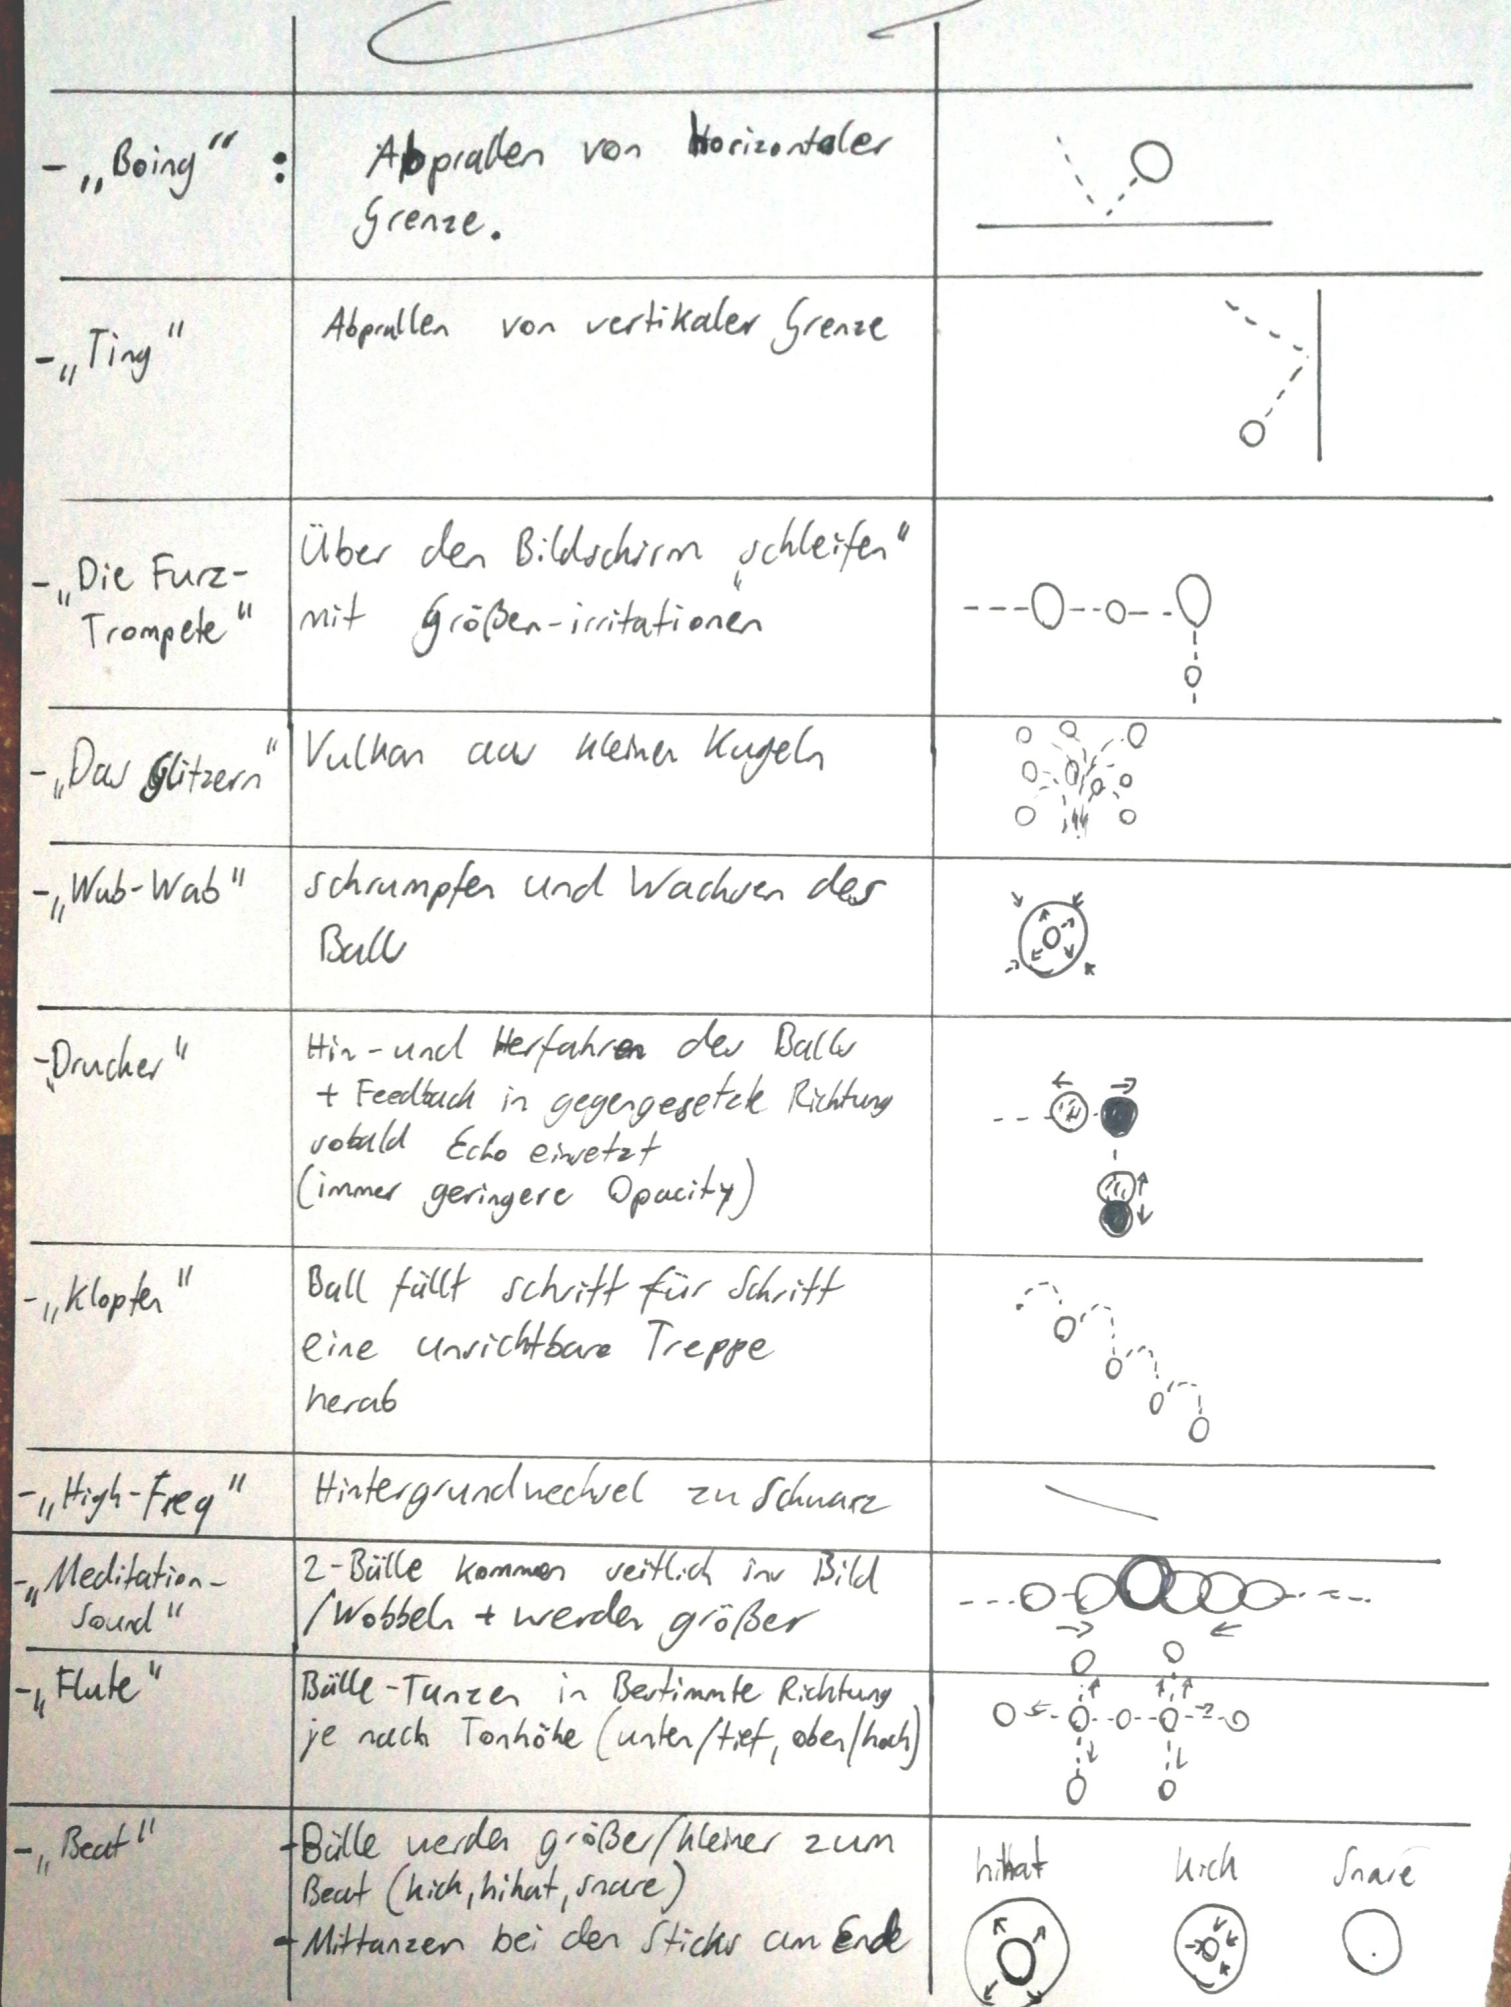 - „Boing" :
Abprallen von Horizontaler
Grenze.
- „Ting"
Abprallen von vertikaler Grenze
- „Die Furz-
Trompete"
Über den Bildschirm „schleifen"
mit Größen-irritationen
- „Das Glitzern"
Vulkan aus kleinen Kugeln
- „Wub-Wab"
schrumpfen und Wachsen des
Balls
- „Drucker"
Hin- und Herfahren des Balls
+ Feedback in gegengesetzte Richtung
sobald Echo einsetzt
(immer geringere Opacity)
- „Klopfen"
Ball fällt schritt für Schritt
eine unsichtbare Treppe
herab
- „High-Freq"
Hintergrundwechsel zu Schwarz
- „Meditation-
Sound"
2-Bälle kommen seitlich ins Bild
/Wobbeln + werden größer
- „Flute"
Bälle-Tanzen in Bestimmte Richtung
je nach Tonhöhe (unten/tief, oben/hoch)
- „Beat"
- Bälle werden größer/kleiner zum
Beat (kick, hihat, snare)
- Mittanzen bei den Sticks am Ende
hihat kick Snare